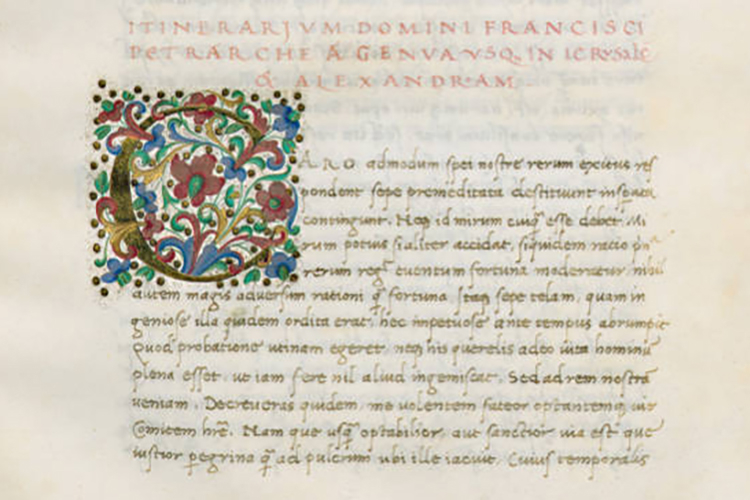 ITINERARJVM DOMINI FRANCISCI
PETRARCHE A GENVA VSQ. IN IERVSALE
& ALEXANDRIAM
CARO admodum spei nostre rerum exitus res
pondent sepe premeditata destituunt insperata
contingunt. Neq id mirum cuiq esse debet. Mi
rum potius si aliter accidat, siquidem racio pa
rerum regit euentum fortuna moderatur nihil
autem magis aduersum rationi q̃ fortuna. Itaq sepe telam, quam in
geniose illa quidem ordita erat, hec impetuose ante tempus abrumpit
Quod probatione utinam egeret. neq his querelis adeo uita hominũ
plena esset. ut iam fere nil aliud ingemiscat. Sed ad rem nostrã
ueniam. Decreueras quidem. me uolentem fateor optantemq uie
Comitem hr̃e. Nam que usq̃ optabilior, aut sanctior uia est que
iustior peregrina q̃ ad pulcrum ubi ille iacuit. Cuius temporalis